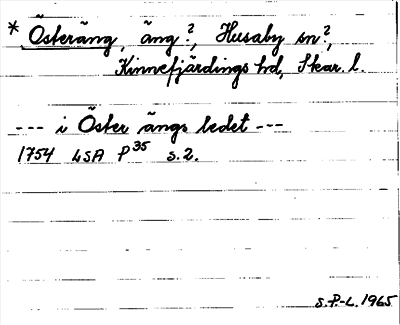 * Österäng, äng?, Husaby sn?,
Kinnefjärdings hd, Skar. l.
--- i Öster ängs ledet ---
1754 LSA P 35 s.2.
S.P.-L. 1965